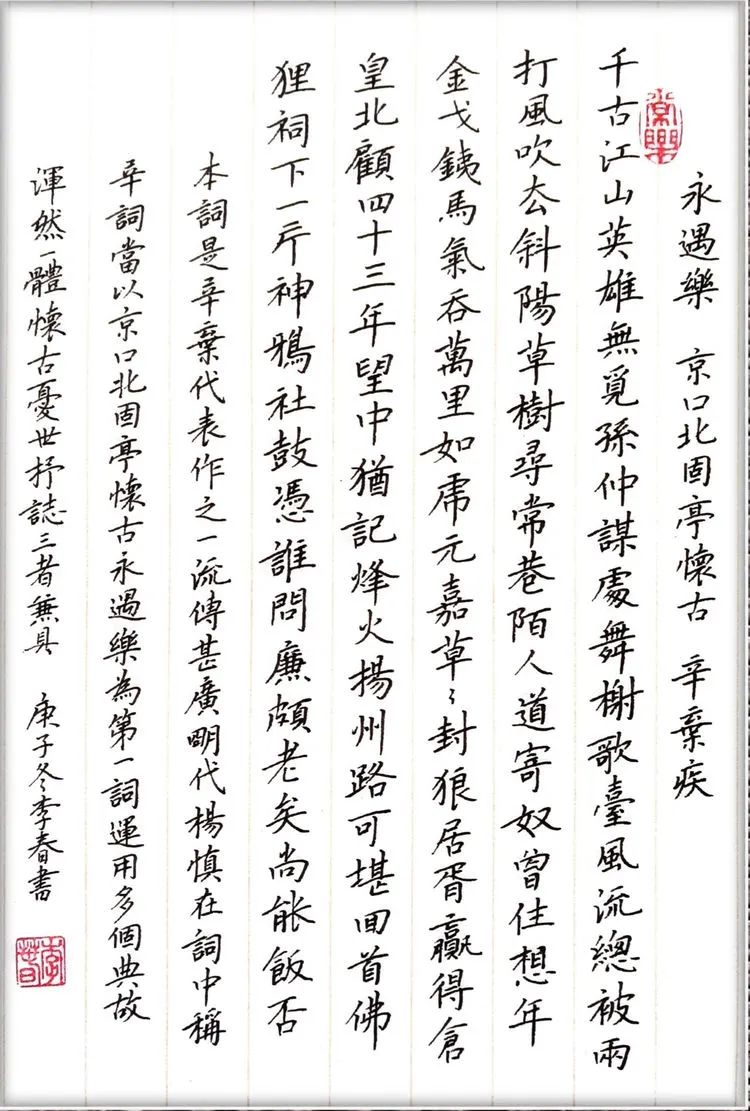 常樂
永遇樂 京口北固亭懷古 辛棄疾
千古江山英雄無覓孫仲謀處舞榭歌臺風流總被雨
打風吹去斜陽草樹尋常巷陌人道寄奴曾住想年
金戈銕馬氣吞萬里如虎元嘉草〻封狼居胥贏得倉
皇北顧四十三年望中猶記烽火揚州路可堪回首佛
狸祠下一片神鴉社鼓憑誰問廉頗老矣尚能飯否
本詞是辛棄代表作之一流傳甚廣明代楊慎在詞中稱
辛詞當以京口北固亭懷古永遇樂為第一詞運用多個典故
渾然一體懷古憂世抒誌三者兼具 庚子冬李春書
李春